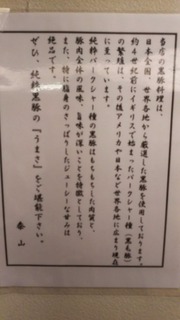 当店の黒豚料理は、
日本全国、世界各地から厳選した黒豚を使用しております。
約4世紀前にイギリスで始まったバークシャー種(黒も豚)
の繁殖は、その後アメリカや日本など世界各地に広まり現在
に至っています。
純粋バークシャー種の黒豚はもちもちした肉質と、
豚肉全体の風味、旨味が深いことを特徴としており、
また、特に脂身のさっぱりしたジューシーな甘みは
純品です。
ぜひ、純粋黒豚の『うまさ』をご堪能下さい。
泰山